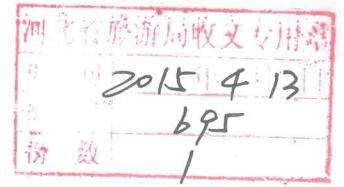 河北省旅游局收文专用章
2015 4 13
695
份数 1